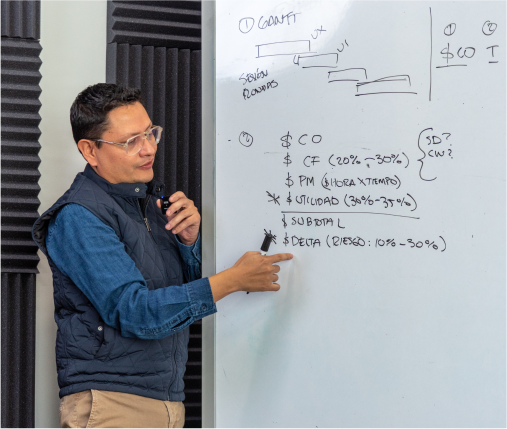 ① GANTT
UX
UI
SESIÓN
① ②
$CO T
② $ CO
$ CF (20% - 30%)
$ PM ($HORA X TIEMPO)
$ UTILIDAD (30% - 35%)
$ SUBTOTAL
$ DELTA (RIESGO: 10% - 30%)
SD?
SW?